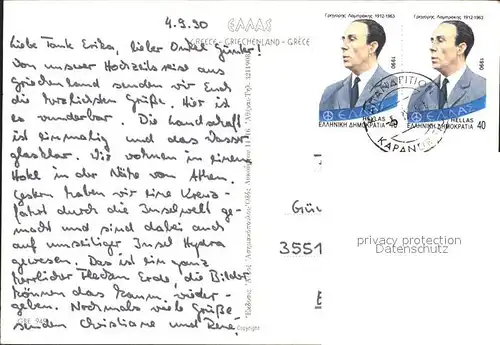 4.9.90
ΕΛΛΑΣ
GREECE - GRIECHENLAND - GRÈCE
Liebe Tante Erika, lieber Onkel Günter!
Von unserer Hochzeitsreise aus
Griechenland senden wir Euch
die herzlichsten Grüße. Hier ist
es wunderbar. Die Landschaft
ist einmalig und das Wasser
glasklar. Wir wohnen in einem
Hotel in der Nähe von Athen.
Gestern haben wir eine Kreuz-
fahrt durch die Inselwelt ge-
macht und sind dabei auch
auf unseliger Insel Hydra
gewesen. Das ist ein ganz
herrlicher Flecken Erde, die Bilder
können das kaum wieder-
geben. Nochmals viele Grüße
senden Christiane und René!
GRE 948
Copyright
Γρηγόρης Λαμπράκης 1912-1963
1990
ΕΛΛΑΣ
HELLAS
ΕΛΛΗΝΙΚΗ ΔΗΜΟΚΡΑΤΙΑ 40
Γρηγόρης Λαμπράκης 1912-1963
1990
ΕΛΛΑΣ
HELLAS
ΕΛΛΗΝΙΚΗ ΔΗΜΟΚΡΑΤΙΑ 40
Gün
3551
privacy protection
Datenschutz